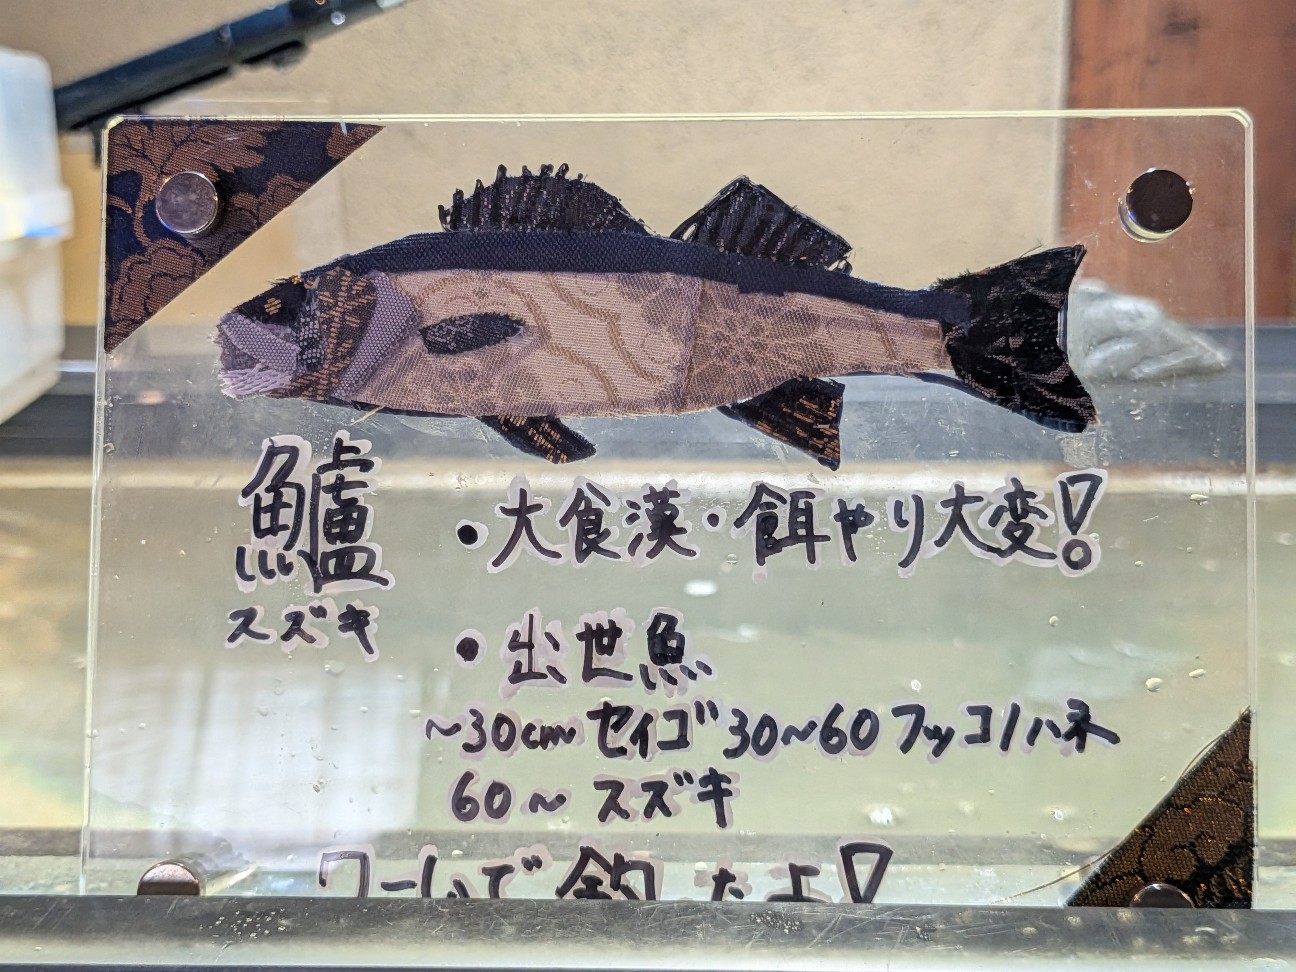 鱸
スズキ
・大食漢・餌やり大変!
・出世魚
~30cm セイゴ 30~60 フッコ/ハネ
60~ スズキ
ワームで釣たよ!